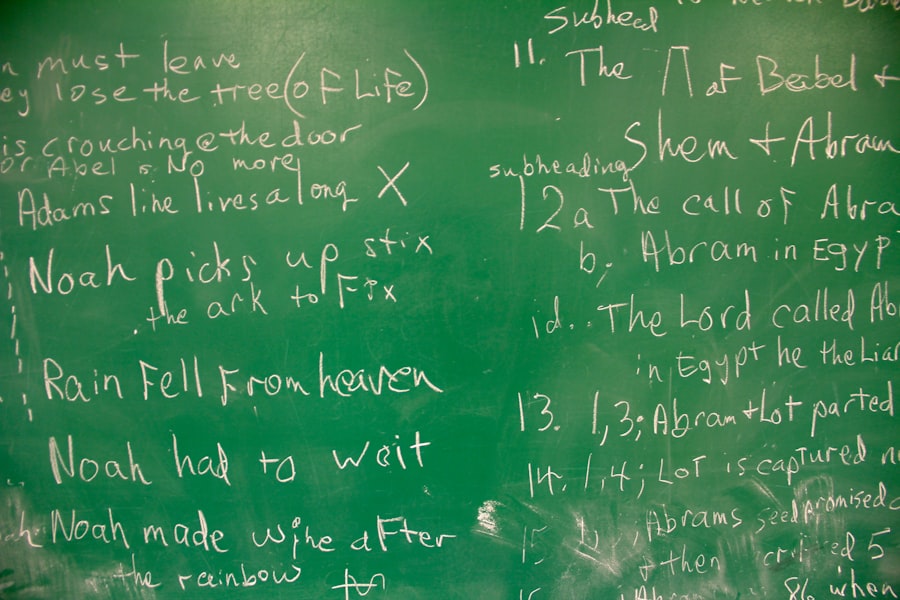 n must leave
ey lose the tree (of Life)
is crouching @ the door
or Abel is No more
Adams line lives along X
Noah picks up stix
the ark to Fix
Rain Fell From heaven
Noah had to wait
Noah made wine after
the rainbow
Subhead
11. The Π of Babel +
Shem + Abram
subheading
12a The call of Abra
b, Abram in Egyp
id. The Lord called Ab
in Egypt he the Liar
13. 1,3; Abram + Lot parted
14. 1,4; Lot is captured n
15 Abrams seed promised
+ then ed 5
86 when